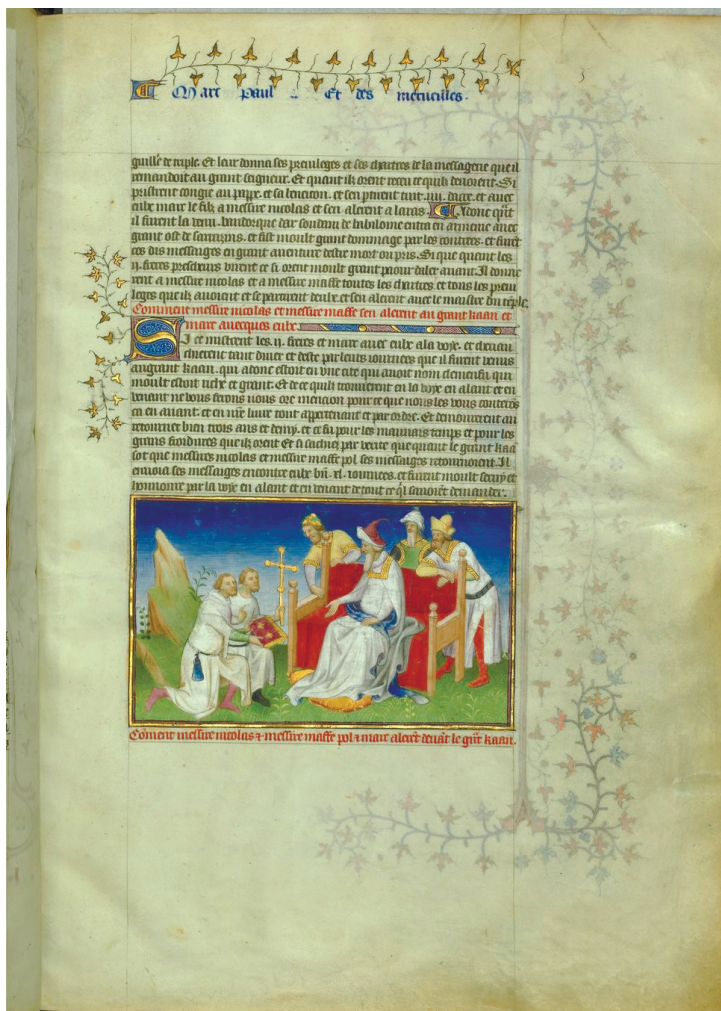 Marc Paul .. Et des merueilles.
guille de triple. Et leur donna ses preuileges et ses chartres de la messagerie que il
remandoit au grant seigneur. Et quant ilz orent receu ce quilz deuoient. Si
pristrent congie au pappe. et sa beneicon. et sen ptirent tout .iiii. dacre. et auec
eulx marc le filz a messire nicolas et sen alerent a laras. Adonc qnt
il furent la venu. bandocque dar soudan de babiloine entra en armenie auec
grant ost de sarrazins. et fist moult grant dommage par les contrees. et furent
ces dis messages en grant auenture destre mort ou pris. Si que quant les
.ij. freres prescheurs virent ce si orent moult grant paour daler auant. Il donne
rent a messire nicolas et a messire maffe toutes les chartres et tous les preui
leges que ilz auoient et se partirent deulx. et sen alerent auec le maistre du temple.
Comment messire nicolas et messire maffe sen alerent au grant kaan et
marc auecques eulx.
Si se mistrent les .ij. freres et marc auec eulx a la voye. et cheuau
chierent tant yuer et este par leurs iournees que il furent venus
au grant kaan. qui adonc estoit en vne cite qui auoit nom clemenfu. qui
moult estoit riche et grant. Et de ce quilz trouuerent en la voye en alant et en
venant ne vous ferons nous ore mencion pour ce que nous le vous conterons
ca en auant. et en nre liure tout appertement et par ordre. Et demourerent au
retourner bien trois ans et demy. et ce fu pour les mauuais temps et pour les
grans froidures que ilz orent Et si sachiez par verite que quant le grant kaan
sot que messires nicolas et messire maffe pol ses messages retournoient. Il
enuoia ses messages encontre eulx bn .xl. iournees. et furent moult seruy et
honnoure par la voye en alant et en venant de tout ce ql sauoient demander.
Comment messire nicolas & messire maffe pol & marc alerent deuant le grnt kaan.